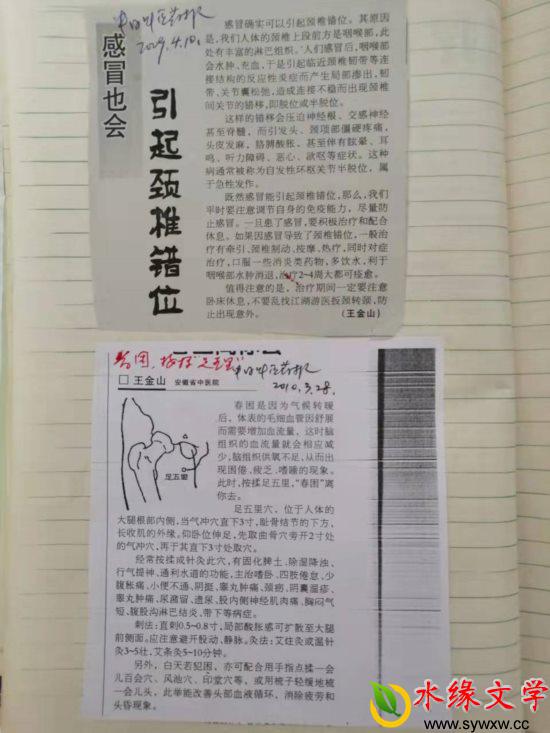 中国中医药报
2009.4.10.
感冒也会
引起颈椎错位
感冒确实可以引起颈椎错位。其原因
是,我们人体的颈椎上段前方是咽喉部,此
处有丰富的淋巴组织。人们感冒后,咽喉部
会水肿、充血,于是引起临近颈椎韧带等连
接结构的反应性炎症而产生局部渗出,韧
带、关节囊松弛,造成连接不稳而出现颈椎
间关节的错移,即脱位或半脱位。
这样的错移会压迫神经根、交感神经
甚至脊髓,而引发头、颈项部僵硬疼痛,
头皮发麻,胳膊酸胀、甚至伴有眩晕、耳
鸣、听力障碍、恶心、欲呕等症状。这种
病通常被称为自发性环枢关节半脱位,属
于急性发作。
既然感冒能引起颈椎错位,那么,我们
平时要注意调节自身的免疫能力,尽量防
止感冒。一旦患了感冒,要积极治疗和配合
休息。如果因感冒导致了颈椎错位,一般治
疗有牵引、颈椎制动、按摩、热疗,同时对症
治疗,口服一些消炎类药物,多饮水,利于
咽喉部水肿消退,治疗2~4周大都可痊愈。
值得注意的是,治疗期间一定要注意
卧床休息,不要乱找江湖游医扳颈转颈,防
止出现意外。
(王金山)
春困,按揉“足五里”
中国中医药报
2010.3.28.
□ 王金山 安徽省中医院
足五里
春困是因为气候转暖
后,体表的毛细血管因舒展
而需要增加血流量,这时脑
组织的血流量就会相应减
少,脑组织供氧不足,从而出
现困倦、疲乏、嗜睡的现象。
此时,按揉足五里,“春困”离
你去。
足五里穴,位于人体的
大腿根部内侧,当气冲穴直下3寸,耻骨结节的下方,
长收肌的外缘。仰卧位伸足,先取曲骨穴旁开2寸处
的气冲穴,再于其直下3寸处取穴。
经常按揉或针灸此穴,有固化脾土、除湿降浊、
行气提神、通利水道的功能,主治嗜卧、四肢倦怠、少
腹胀痛、小便不通、阴挺、睾丸肿痛、颈疬,阴囊湿疹、
睾丸肿痛、尿潴留、遗尿、股内侧神经肌肉痛、胸闷气
短、腹股沟淋巴结炎、带下等病症。
刺法:直刺0.5~0.8寸,局部酸胀感可扩散至大腿
前侧面。应注意避开股动、静脉。灸法:艾炷灸或温针
灸3~5壮,艾条灸5~10分钟。
另外,白天若犯困,亦可配合用手指点揉一会
儿百会穴、风池穴、印堂穴等,或用梳子轻缓地梳
一会儿头,此举能改善头部血液循环,消除疲劳和
头昏现象。
水缘文学
www.sywxw.cc